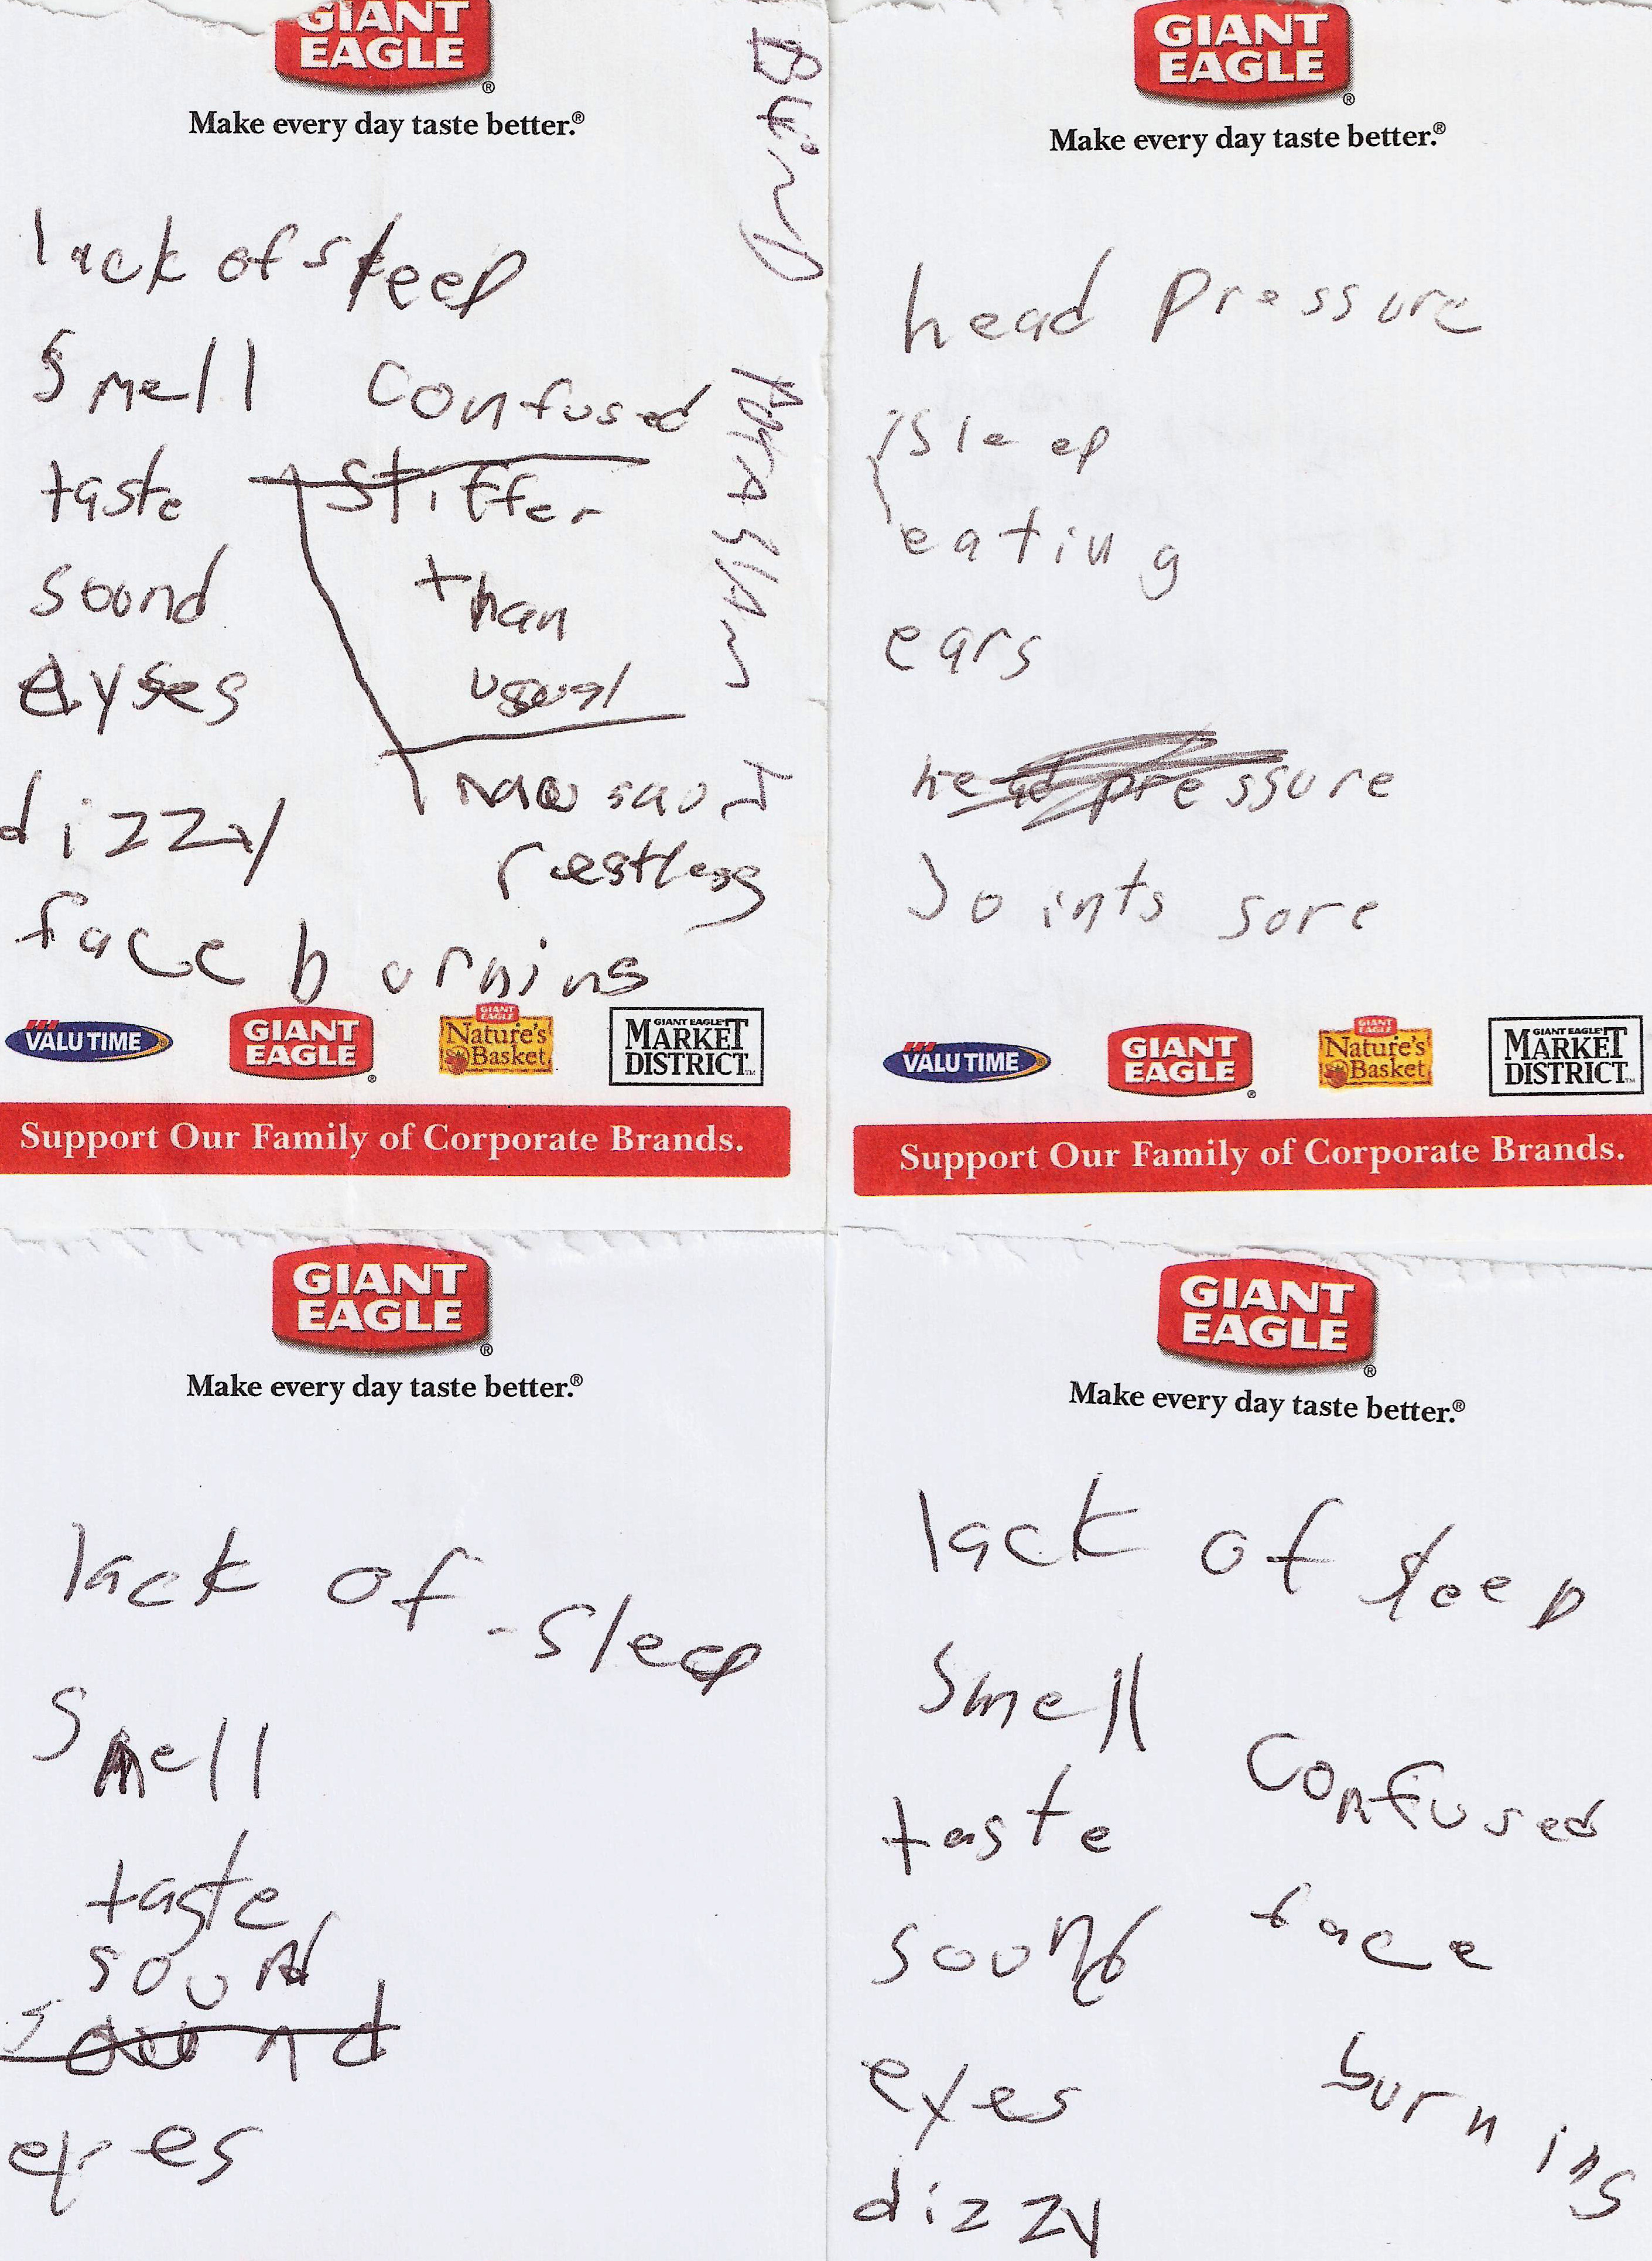 GIANT
EAGLE®
Make every day taste better.®
lack of sleep
smell confused
taste stiffer
sound than
eyses usual
dizzy
restless
face burning
VALU TIME GIANT EAGLE® GIANT EAGLE Nature's Basket GIANT EAGLE® MARKET DISTRICT™
Support Our Family of Corporate Brands.
GIANT
EAGLE®
Make every day taste better.®
head pressure
sleep
eating
ears
head pressure
Joints sore
VALU TIME GIANT EAGLE® GIANT EAGLE Nature's Basket GIANT EAGLE® MARKET DISTRICT™
Support Our Family of Corporate Brands.
GIANT
EAGLE®
Make every day taste better.®
lack of sleep
smell
taste
sound
sound
eyes
GIANT
EAGLE®
Make every day taste better.®
lack of sleep
smell
confused
taste
face
sound
burning
eyes
dizzy